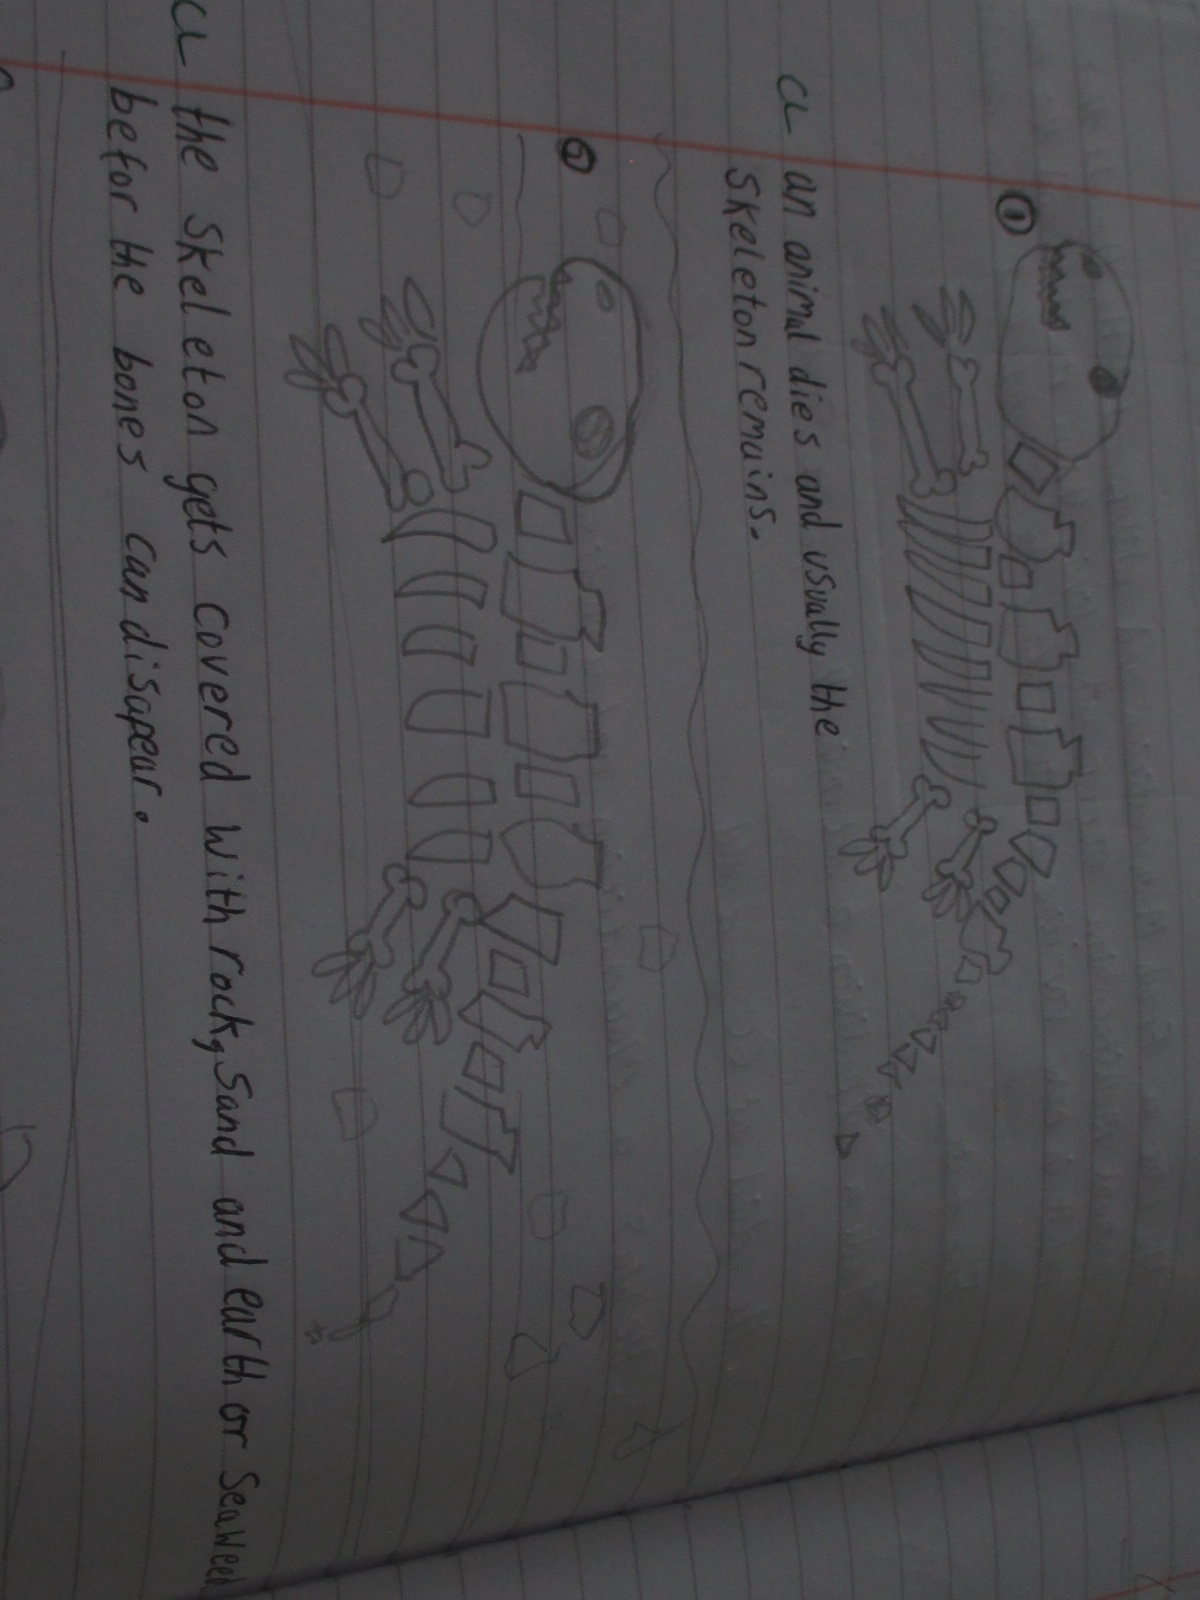 ①
CL an animal dies and usually the
skeleton remains.
②
CL the skeleton gets covered with rock, sand and earth or seaweed
befor the bones can disapear.